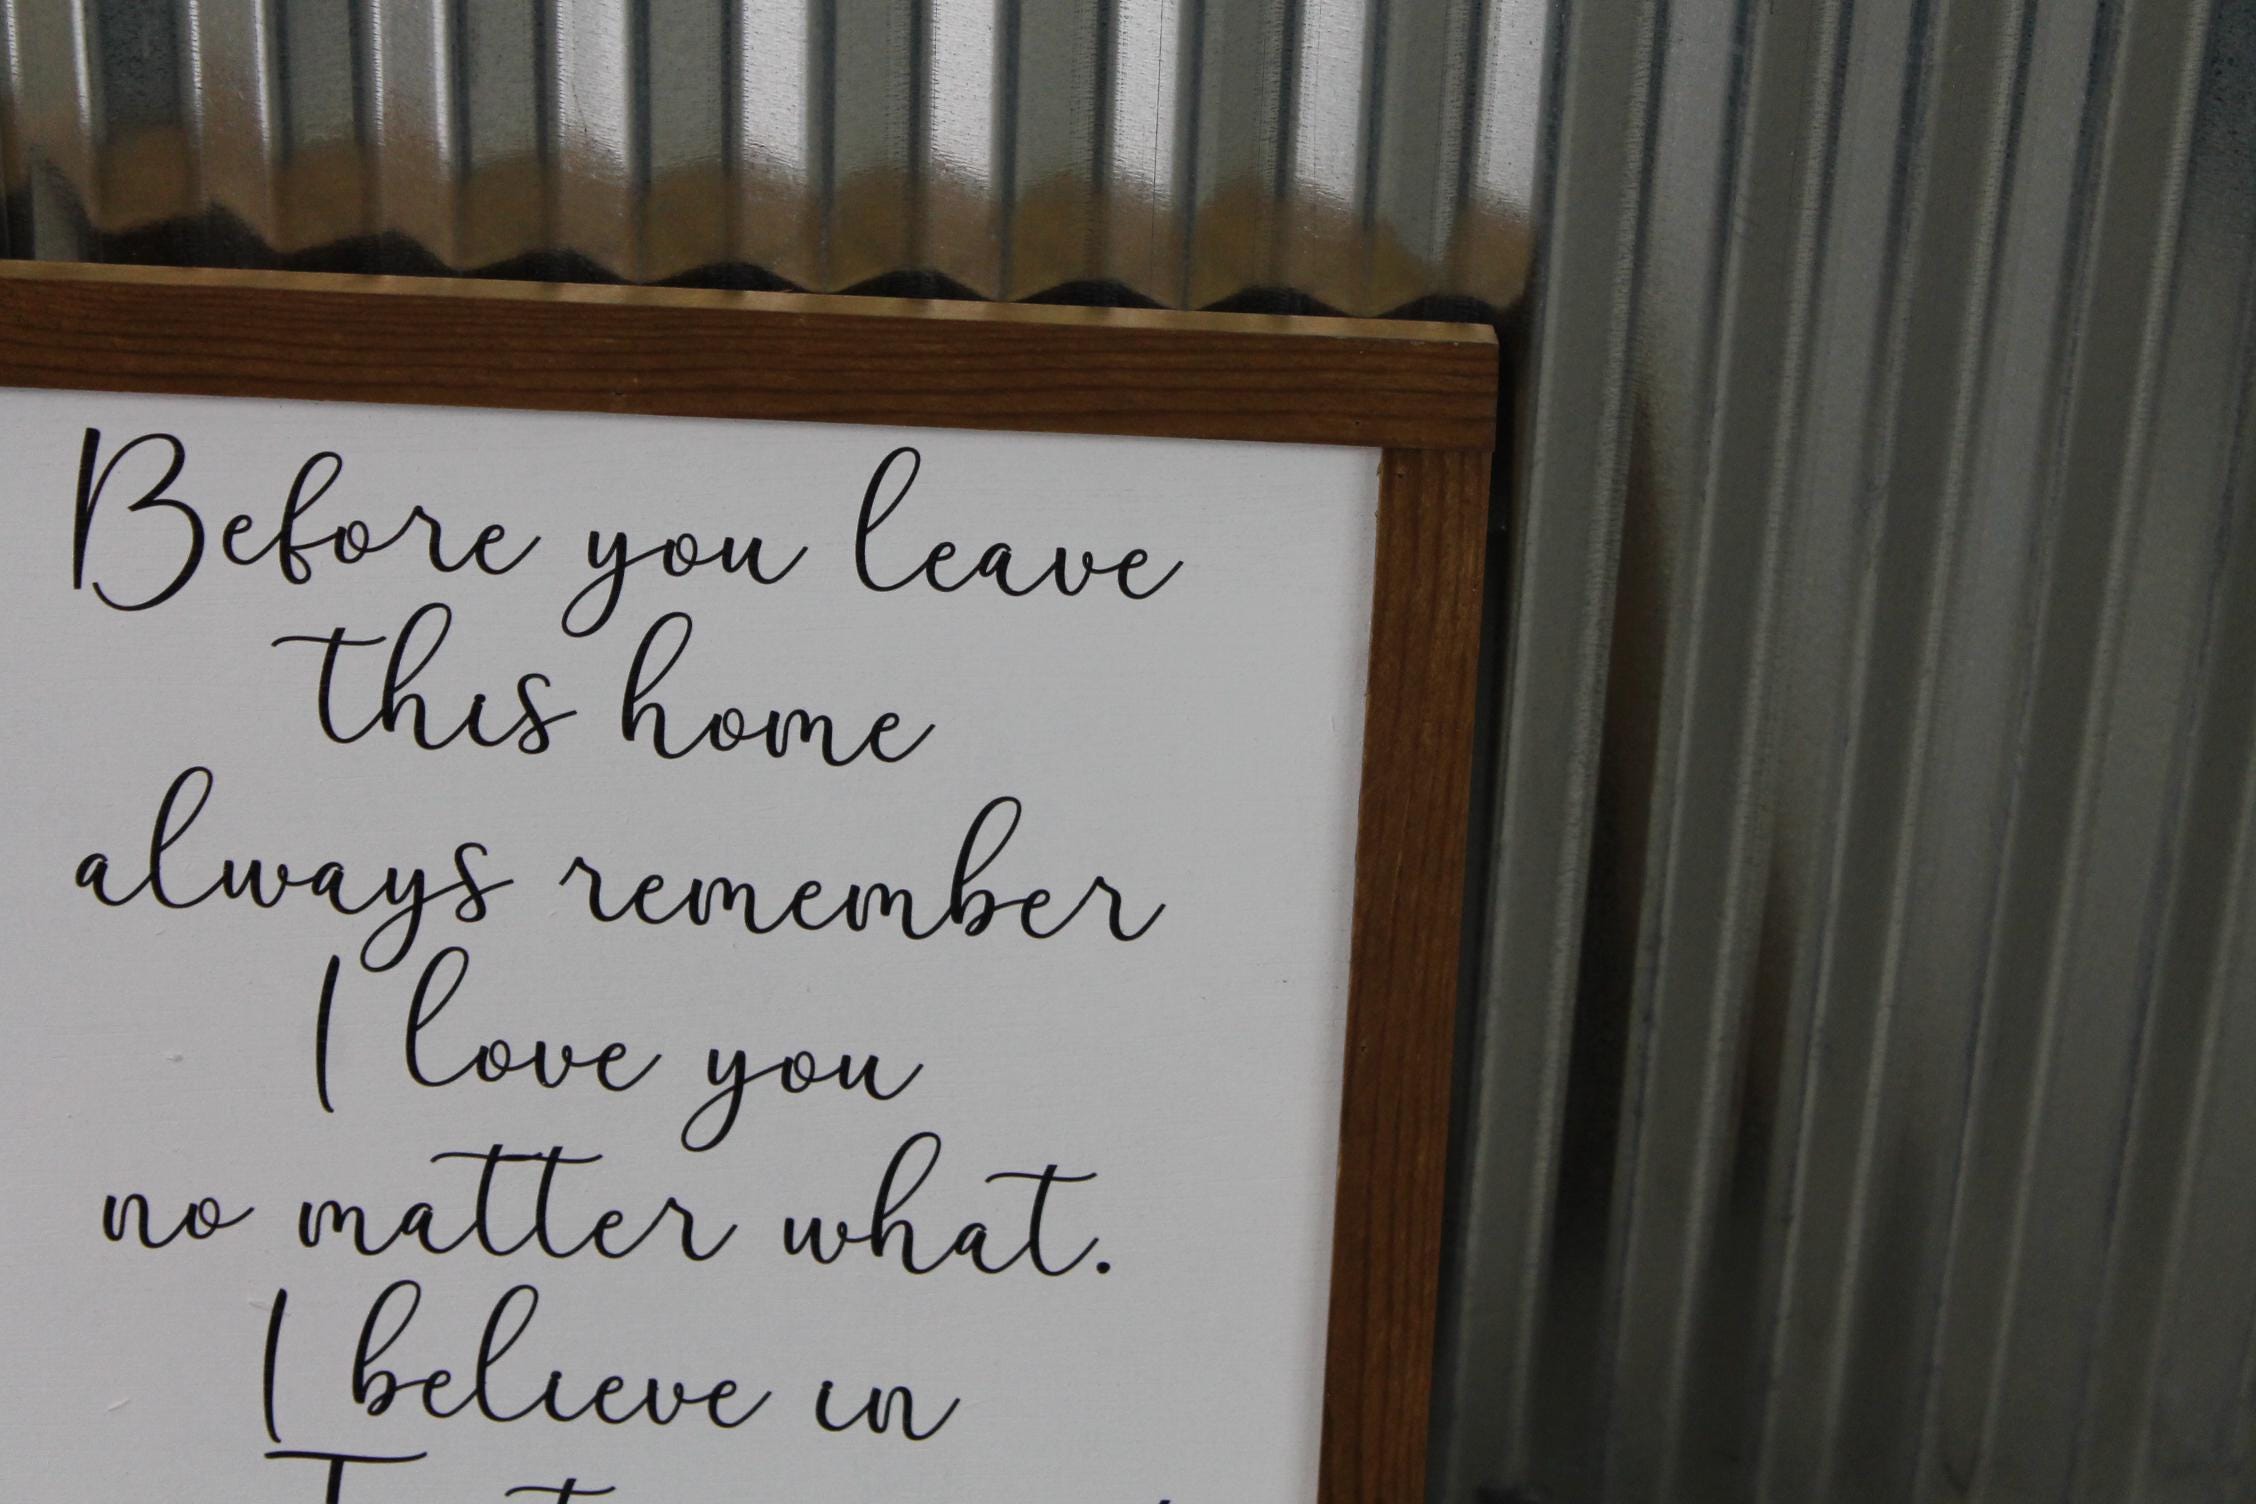 Before you leave
this home
always remember
I love you
no matter what.
I believe in